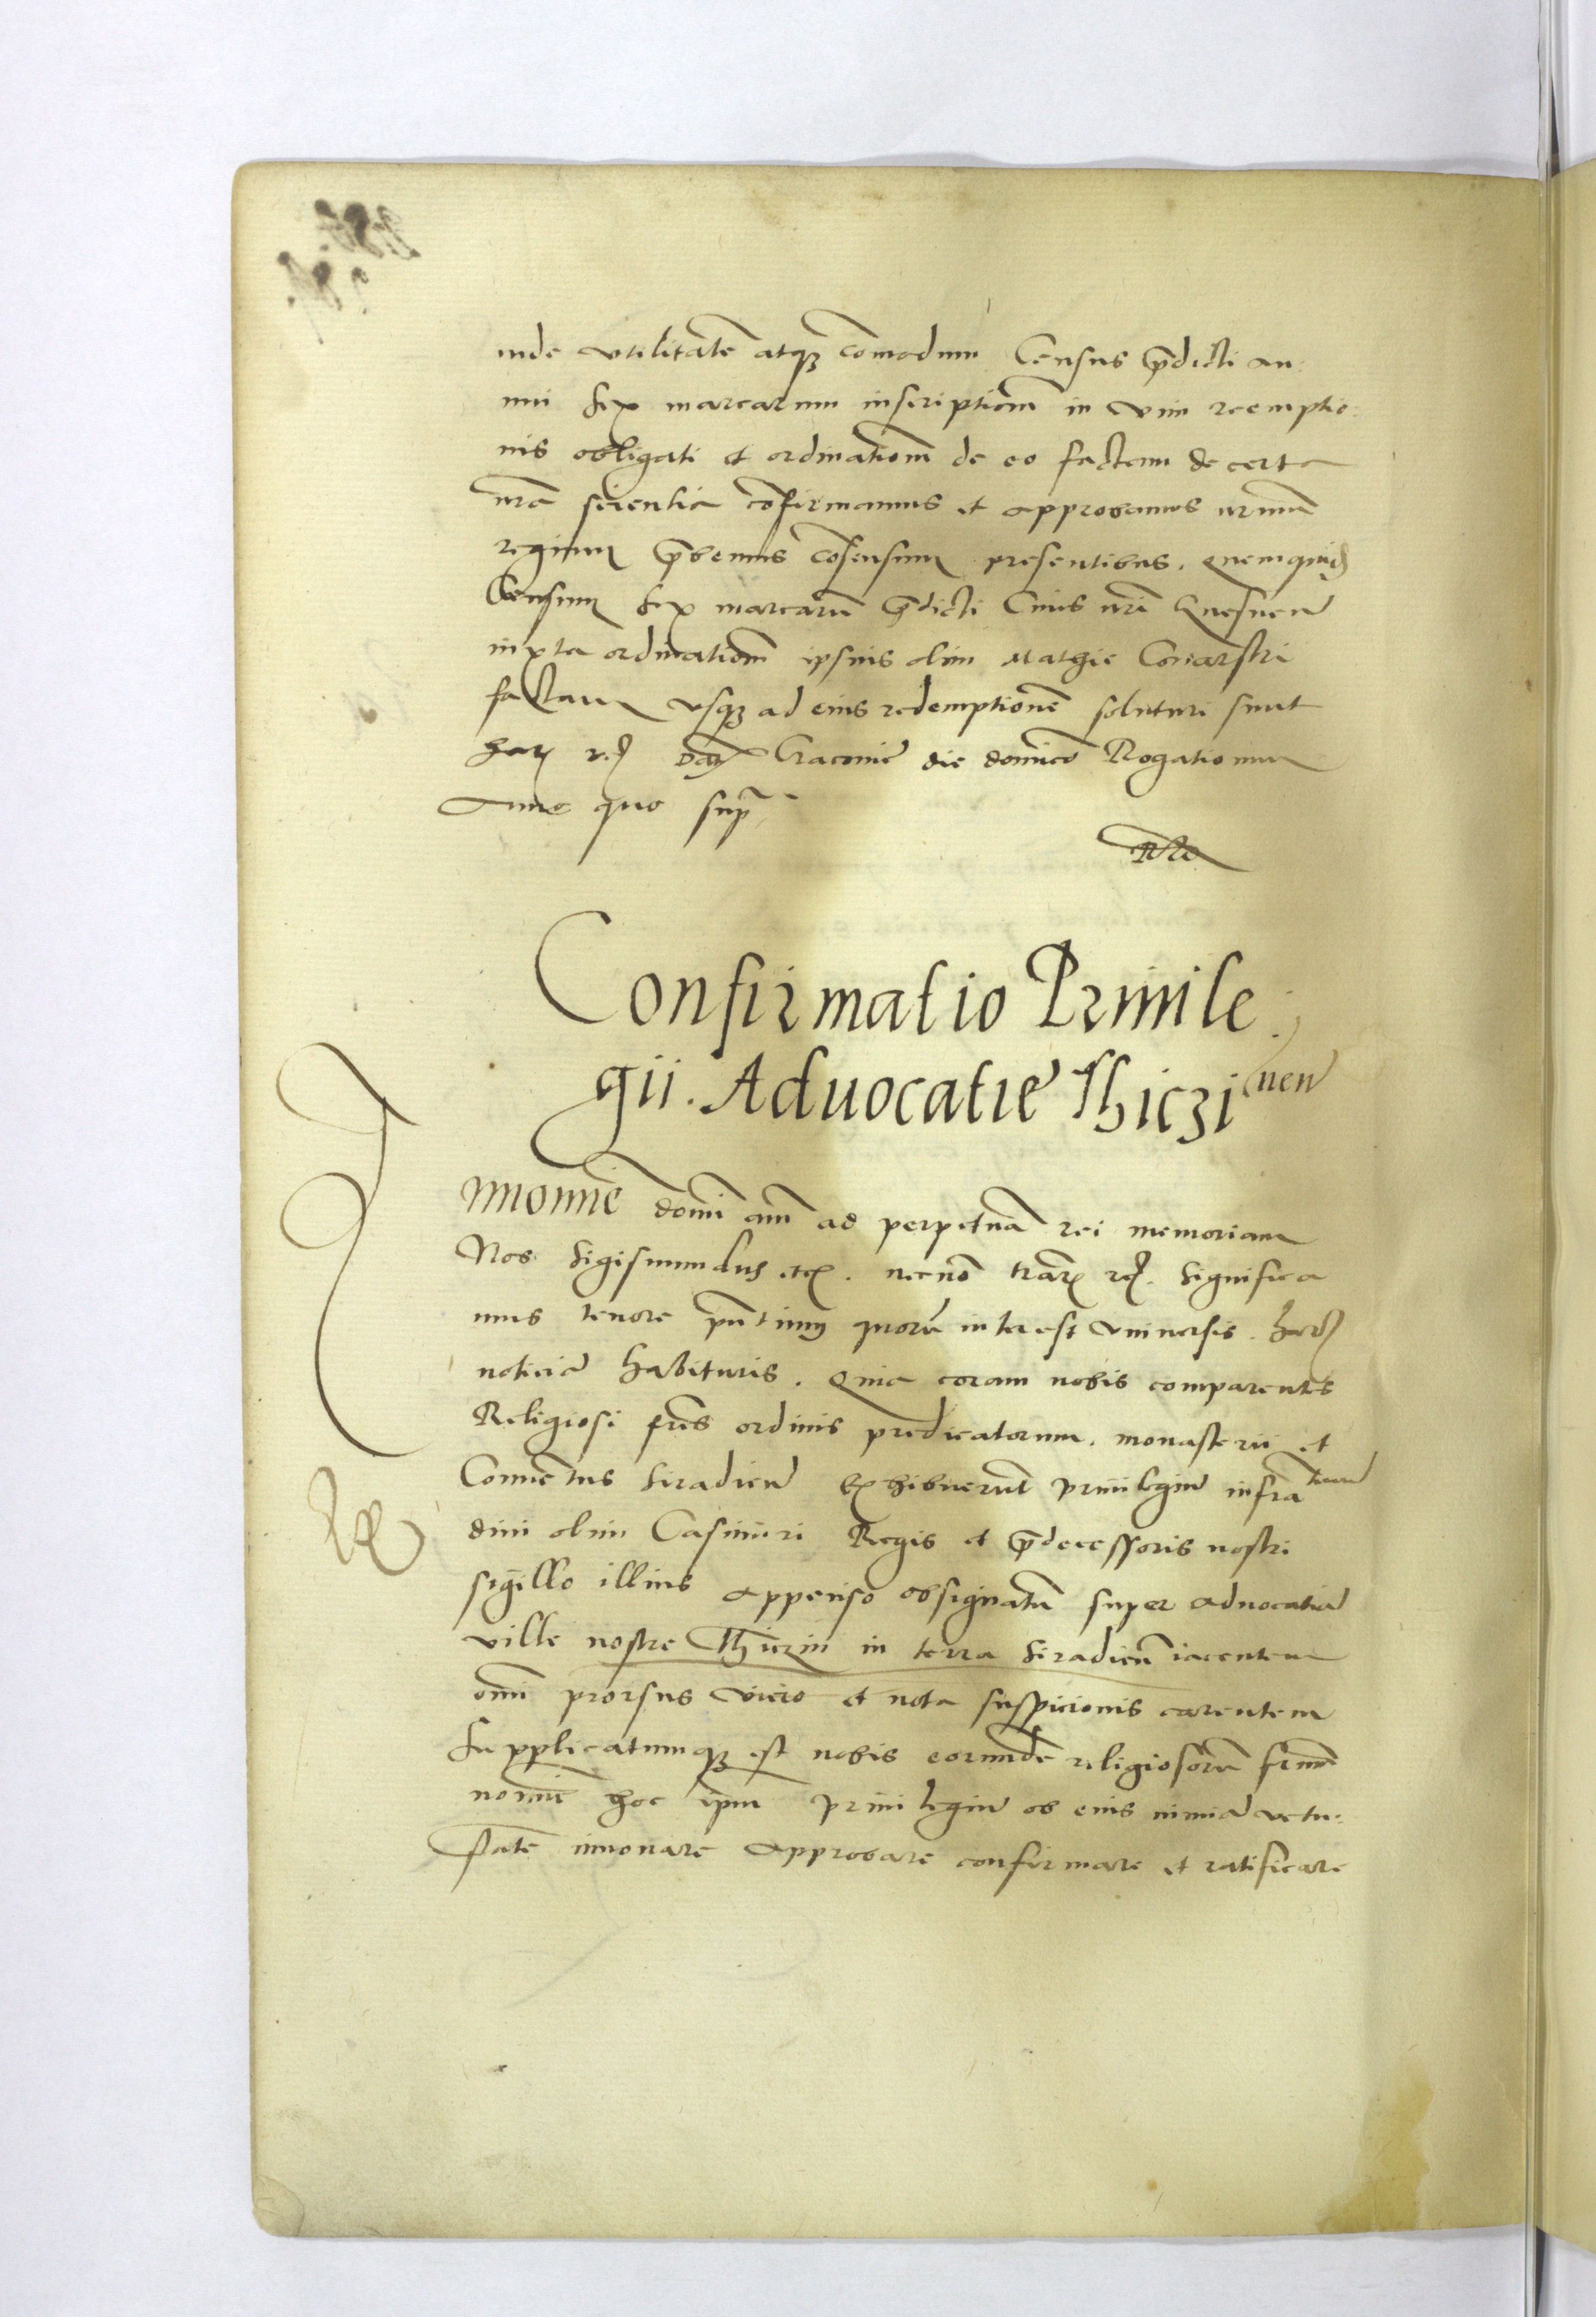 inde utilitatē atqʒ cōmodum Census p̄dicti an
nui sex marcarum inscriptionē in vim reemptio
nis obligati et ordinationē de eo factam de certa
nrā scientia cōfirmamus et approbamus nrumꝗ
regium p̄bemus cōsensum presentibus. quemquid
Censum sex marcarū p̄dicti Ciues nrī
iuxta ordinationē ipsius olim Mathie
factam vsqʒ ad eius redemptionē soluturi sunt
har rͤ. Datʒ Cracouie die dominico Rogationum
Anno quo sup̄
Confirmatio Priuile
gii. Aduocatie Thiczinen
In noīe domī amē ad perpetuā rei memoriam
Nos Sigismundus etc. necnō trarʒ rc. Significa
mus tenore pn̄tium quorū interest vniuersis. harʒ
noticiā habituris. Quia coram nobis comparentes
Religiosi frēs ordinis predicatorum. monasterii et
Conuētus Siradien Exhibuerūt priuilegiū infra
diui olim Casimiri Regis et p̄decessoris nostri
sigillo illius appenso obsignatū super aduocatiā
ville nostre Thiczin in terra Siradieñ iacentem
omī prorsus vicio et nota suspicionis carentem
Supplicatumqʒ est nobis eorundē religiosorū frūm
nomīe hoc ipm̄ priuilegiū ob eius nimiā vetu
statē innouare approbare confirmare et ratificare